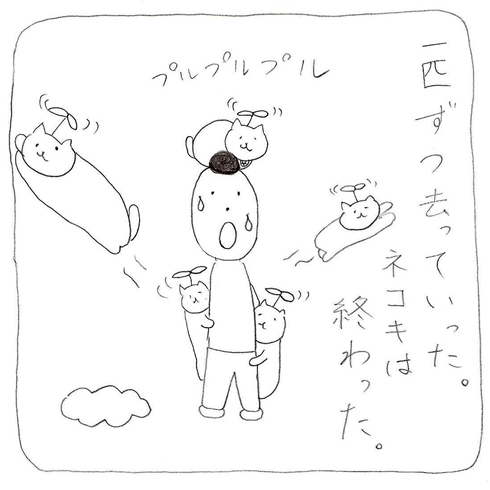 一匹ずつ去っていった。
ネコキは
終わった。
プルプルプル